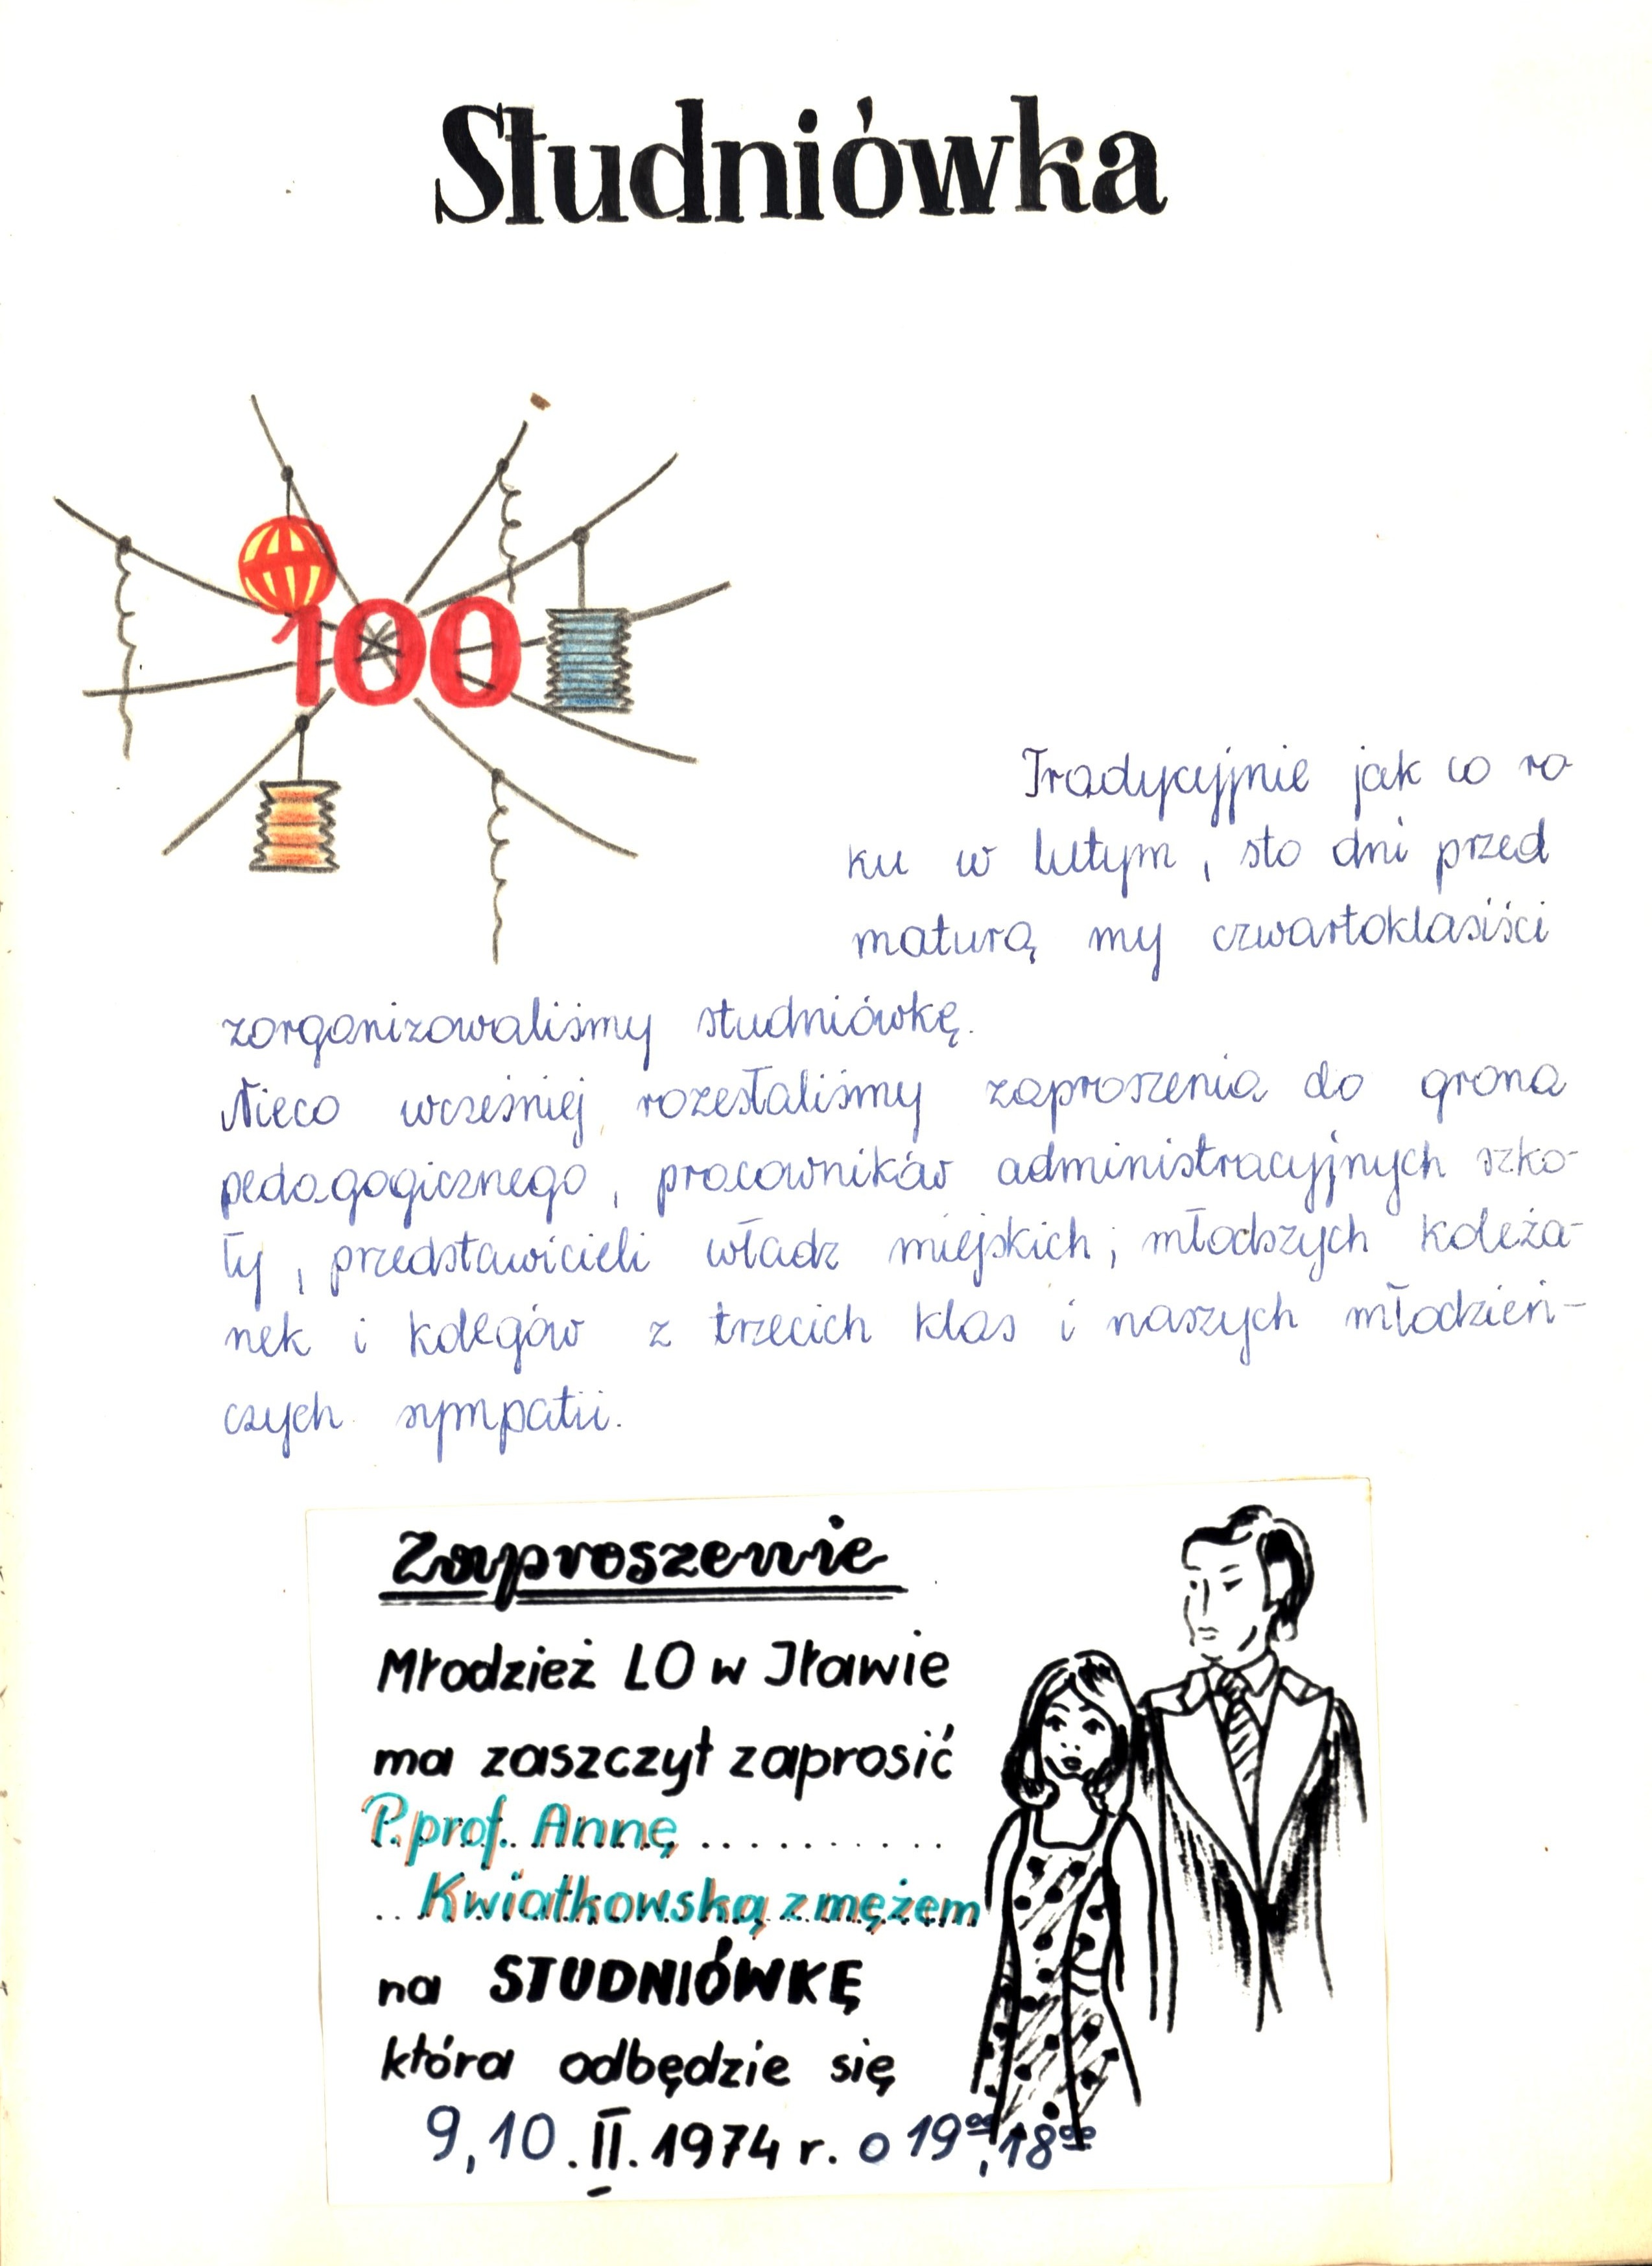 Studniówka
100
Tradycyjnie jak co ro-
ku w lutym, sto dni przed
maturą my czwartoklasiści
zorganizowaliśmy studniówkę.
Nieco wcześniej rozesłaliśmy zaproszenia do grona
pedagogicznego, pracowników administracyjnych szko-
ły, przedstawicieli władz miejskich; młodszych koleża-
nek i kolegów z trzecich klas i naszych młodzień-
czych sympatii.
Zaproszenie
Młodzież LO w Iławie
ma zaszczyt zaprosić
P. prof. Annę..........
..Kwiatkowską z mężem
na STUDNIÓWKĘ
która odbędzie się
9, 10. II. 1974 r. o 19⁰⁰, 18⁰⁰